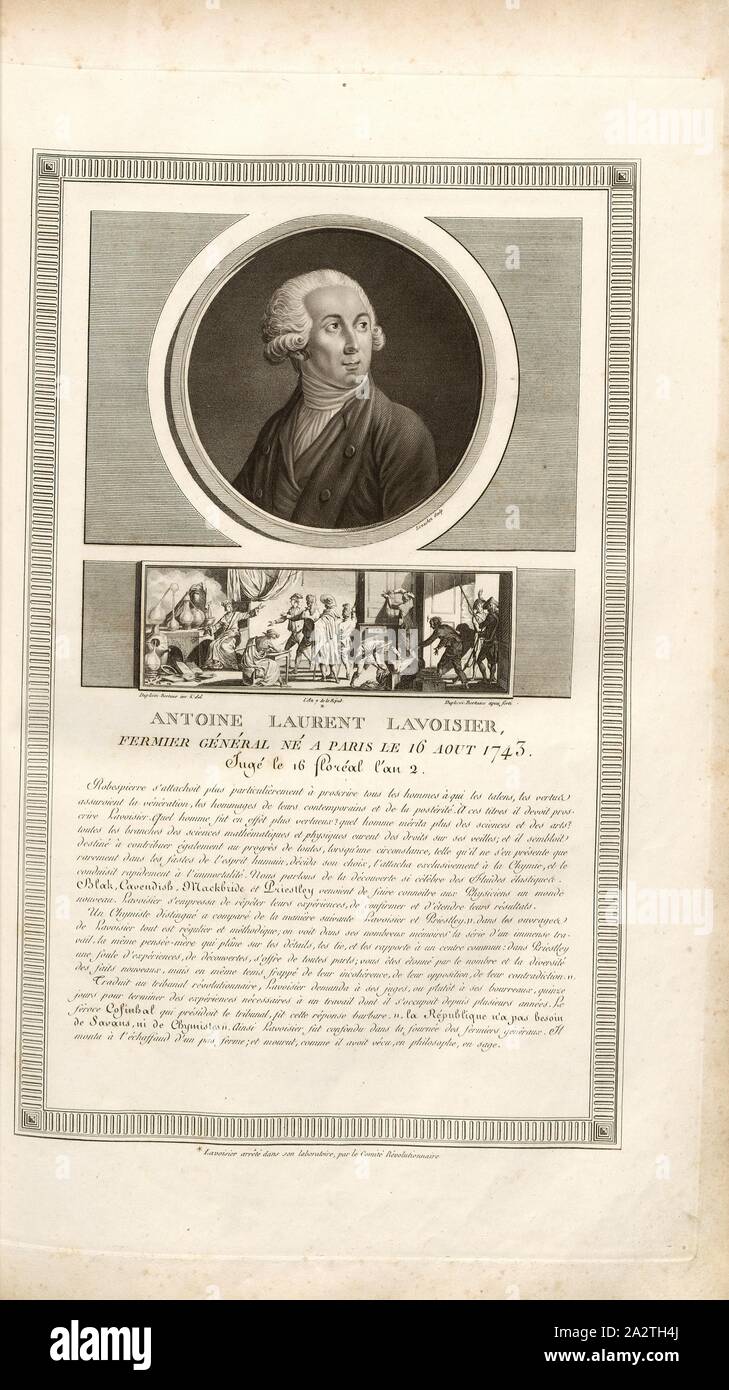 alamy
a
Levachez Sculp
Duplessi-Bertaux inv. & del.
L'An 7 de la Répub.
Duplessi-Bertaux aqua forti
*
ANTOINE LAURENT LAVOISIER,
FERMIER GÉNÉRAL NÉ A PARIS LE 16 AOUT 1743.
Jugé le 16 floréal l'an 2.
Robespierre s'attachoit plus particulièrement à proscrire tous les hommes à qui les talens, les vertus
assuroient la vénération, les hommages de leurs contemporains et de la postérité. A ces titres il devoit pros-
crire Lavoisier. Quel homme fut en effet plus vertueux? quel homme mérita plus des sciences et des arts?
toutes les branches des sciences mathématiques et physiques eurent des droits sur ses veilles; et il sembloit
destiné à contribuer également au progrès de toutes, lorsqu'une circonstance, telle qu'il ne s'en présente que
rarement dans les fastes de l'esprit humain, décida son choix, l'attacha exclusivement à la Chymie, et le
conduisit rapidement à l'immortalité. Nous parlons de la découverte si célèbre des Fluides élastiques.
Blak, Cavendish, Mackbride et Priestley venoient de faire connoitre aux Physiciens un monde
nouveau. Lavoisier s'empressa de répéter leurs expériences, de confirmer et d'étendre leurs résultats.
Un Chymiste distingué a comparé de la manière suivante Lavoisier et Priestley. „ dans les ouvrages
de Lavoisier tout est régulier et méthodique; on voit dans ses nombreux mémoires la série d'un immense tra-
vail, la même pensée-mère qui plâne sur les détails, les lie, et les rapporte à un centre commun: dans Priestley
une foule d'expériences, de découvertes, s'offre de toutes parts; vous êtes étonné par le nombre et la diversité
des faits nouveaux, mais en même tems frappé de leur incohérence, de leur opposition, de leur contradiction. „
Traduit au tribunal révolutionnaire, Lavoisier demanda à ses juges, ou plutôt à ses bourreaux, quinze
jours pour terminer des expériences nécessaires à un travail dont il s'occupoit depuis plusieurs années. Le
féroce Cofinhal qui présidoit le tribunal, fit cette réponse barbare. „ la République n'a pas besoin
de Savans, ni de Chymistes „. Ainsi Lavoisier fut confondu dans la fournée des fermiers généraux. Il
monta à l'échaffaud d'un pas ferme; et mourut, comme il avoit vécu, en philosophe, en sage.
* Lavoisier arrêté dans son laboratoire, par le Comité Révolutionnaire
alamy
Image ID: 2A2TH4J
www.alamy.com